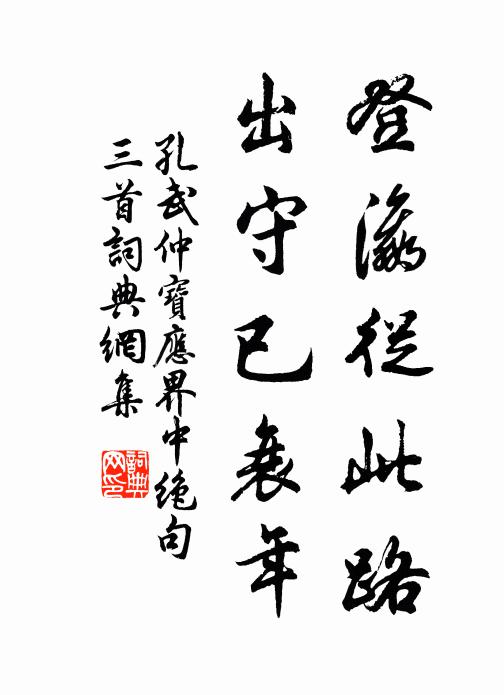 登瀛從此路
出守已衰年
孔武仲寶應界中絕句
三首詞典網集
詞典
网印